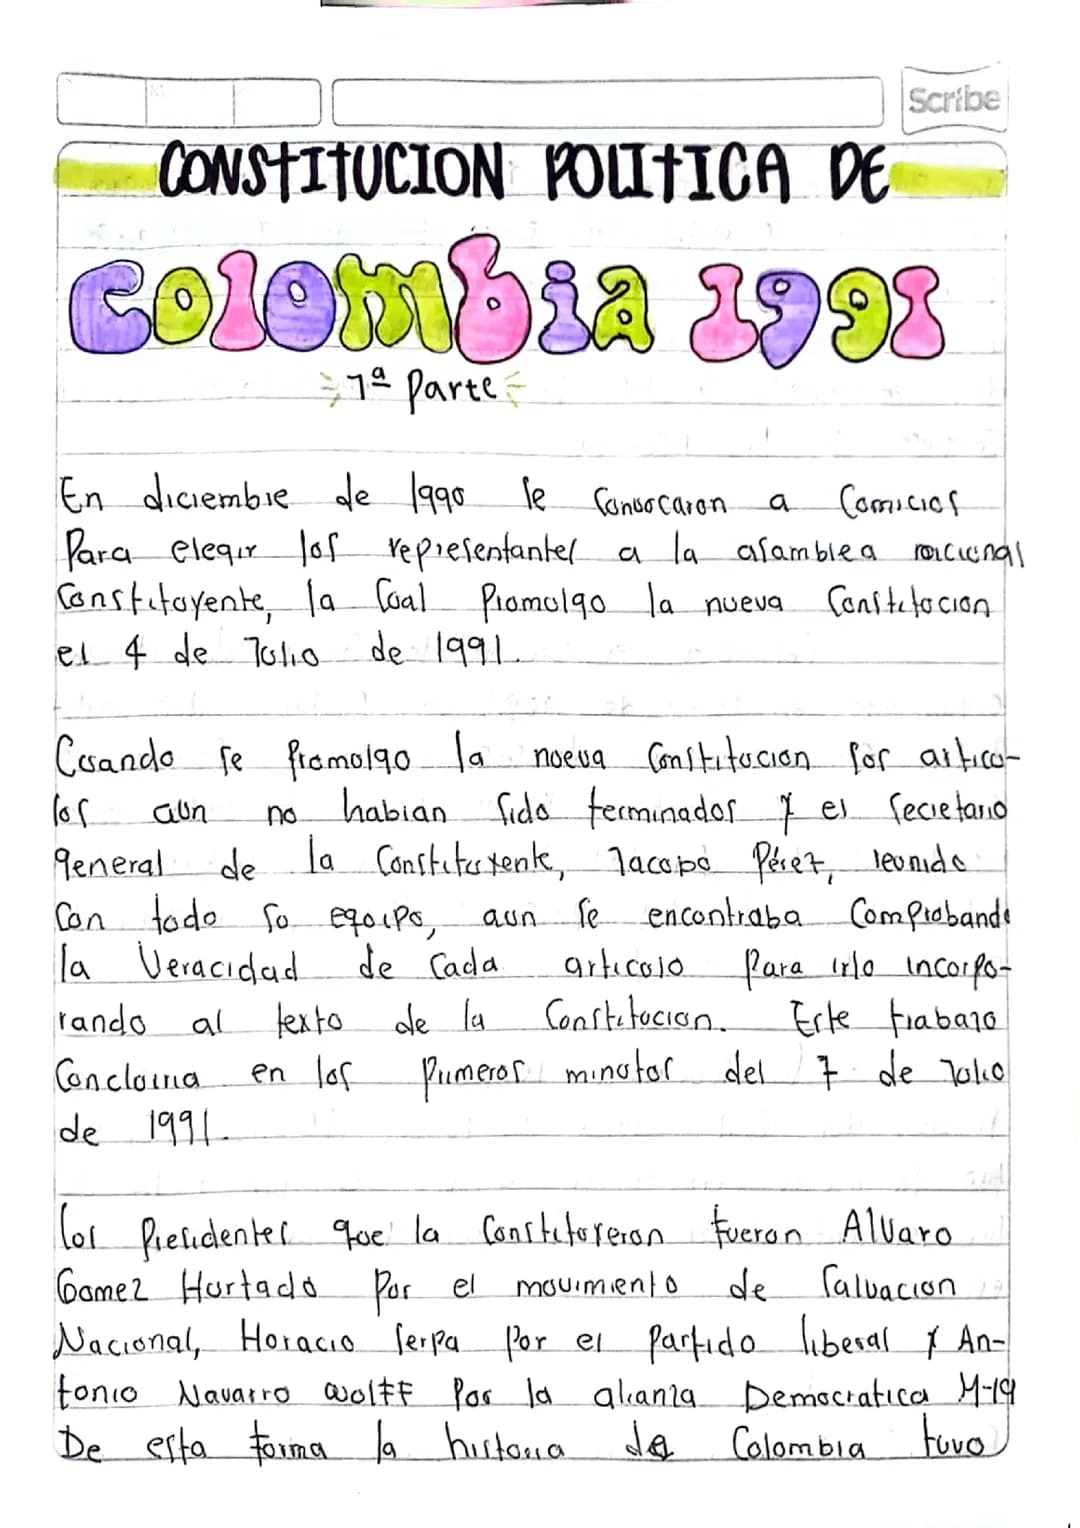 Scribe
CONSTITUCION POLITICA DE
Colombia 1991
1ª Parte
En diciembre de 1990 se Convocaron a Comicios
Para elegir los representantes a la asamblea nacional
Constituyente, la Cual Promulgo la nueva Constitucion
el 4 de Julio de 1991.
Cuando se Promulgo la nueva Constitucion sus articu-
los aun no habian sido terminados y el Secretario
general de la Constituyente, Jacobo Pérez, reunido
Con todo su equipo, aun se encontraba Comprobando
la Veracidad de Cada articulo Para irlo incorpo-
rando al texto de la Constitucion. Este trabajo
Concluiria en los Primeros minutos del 7 de Julio
de 1991.
los Presidentes que la Constituyeron fueron Alvaro
Gomez Hurtado Por el movimiento de Salvacion
Nacional, Horacio Serpa Por el Partido liberal y An-
tonio Navarro Wolff Por la alianza Democratica M-19
De esta forma la historia de Colombia tuvo